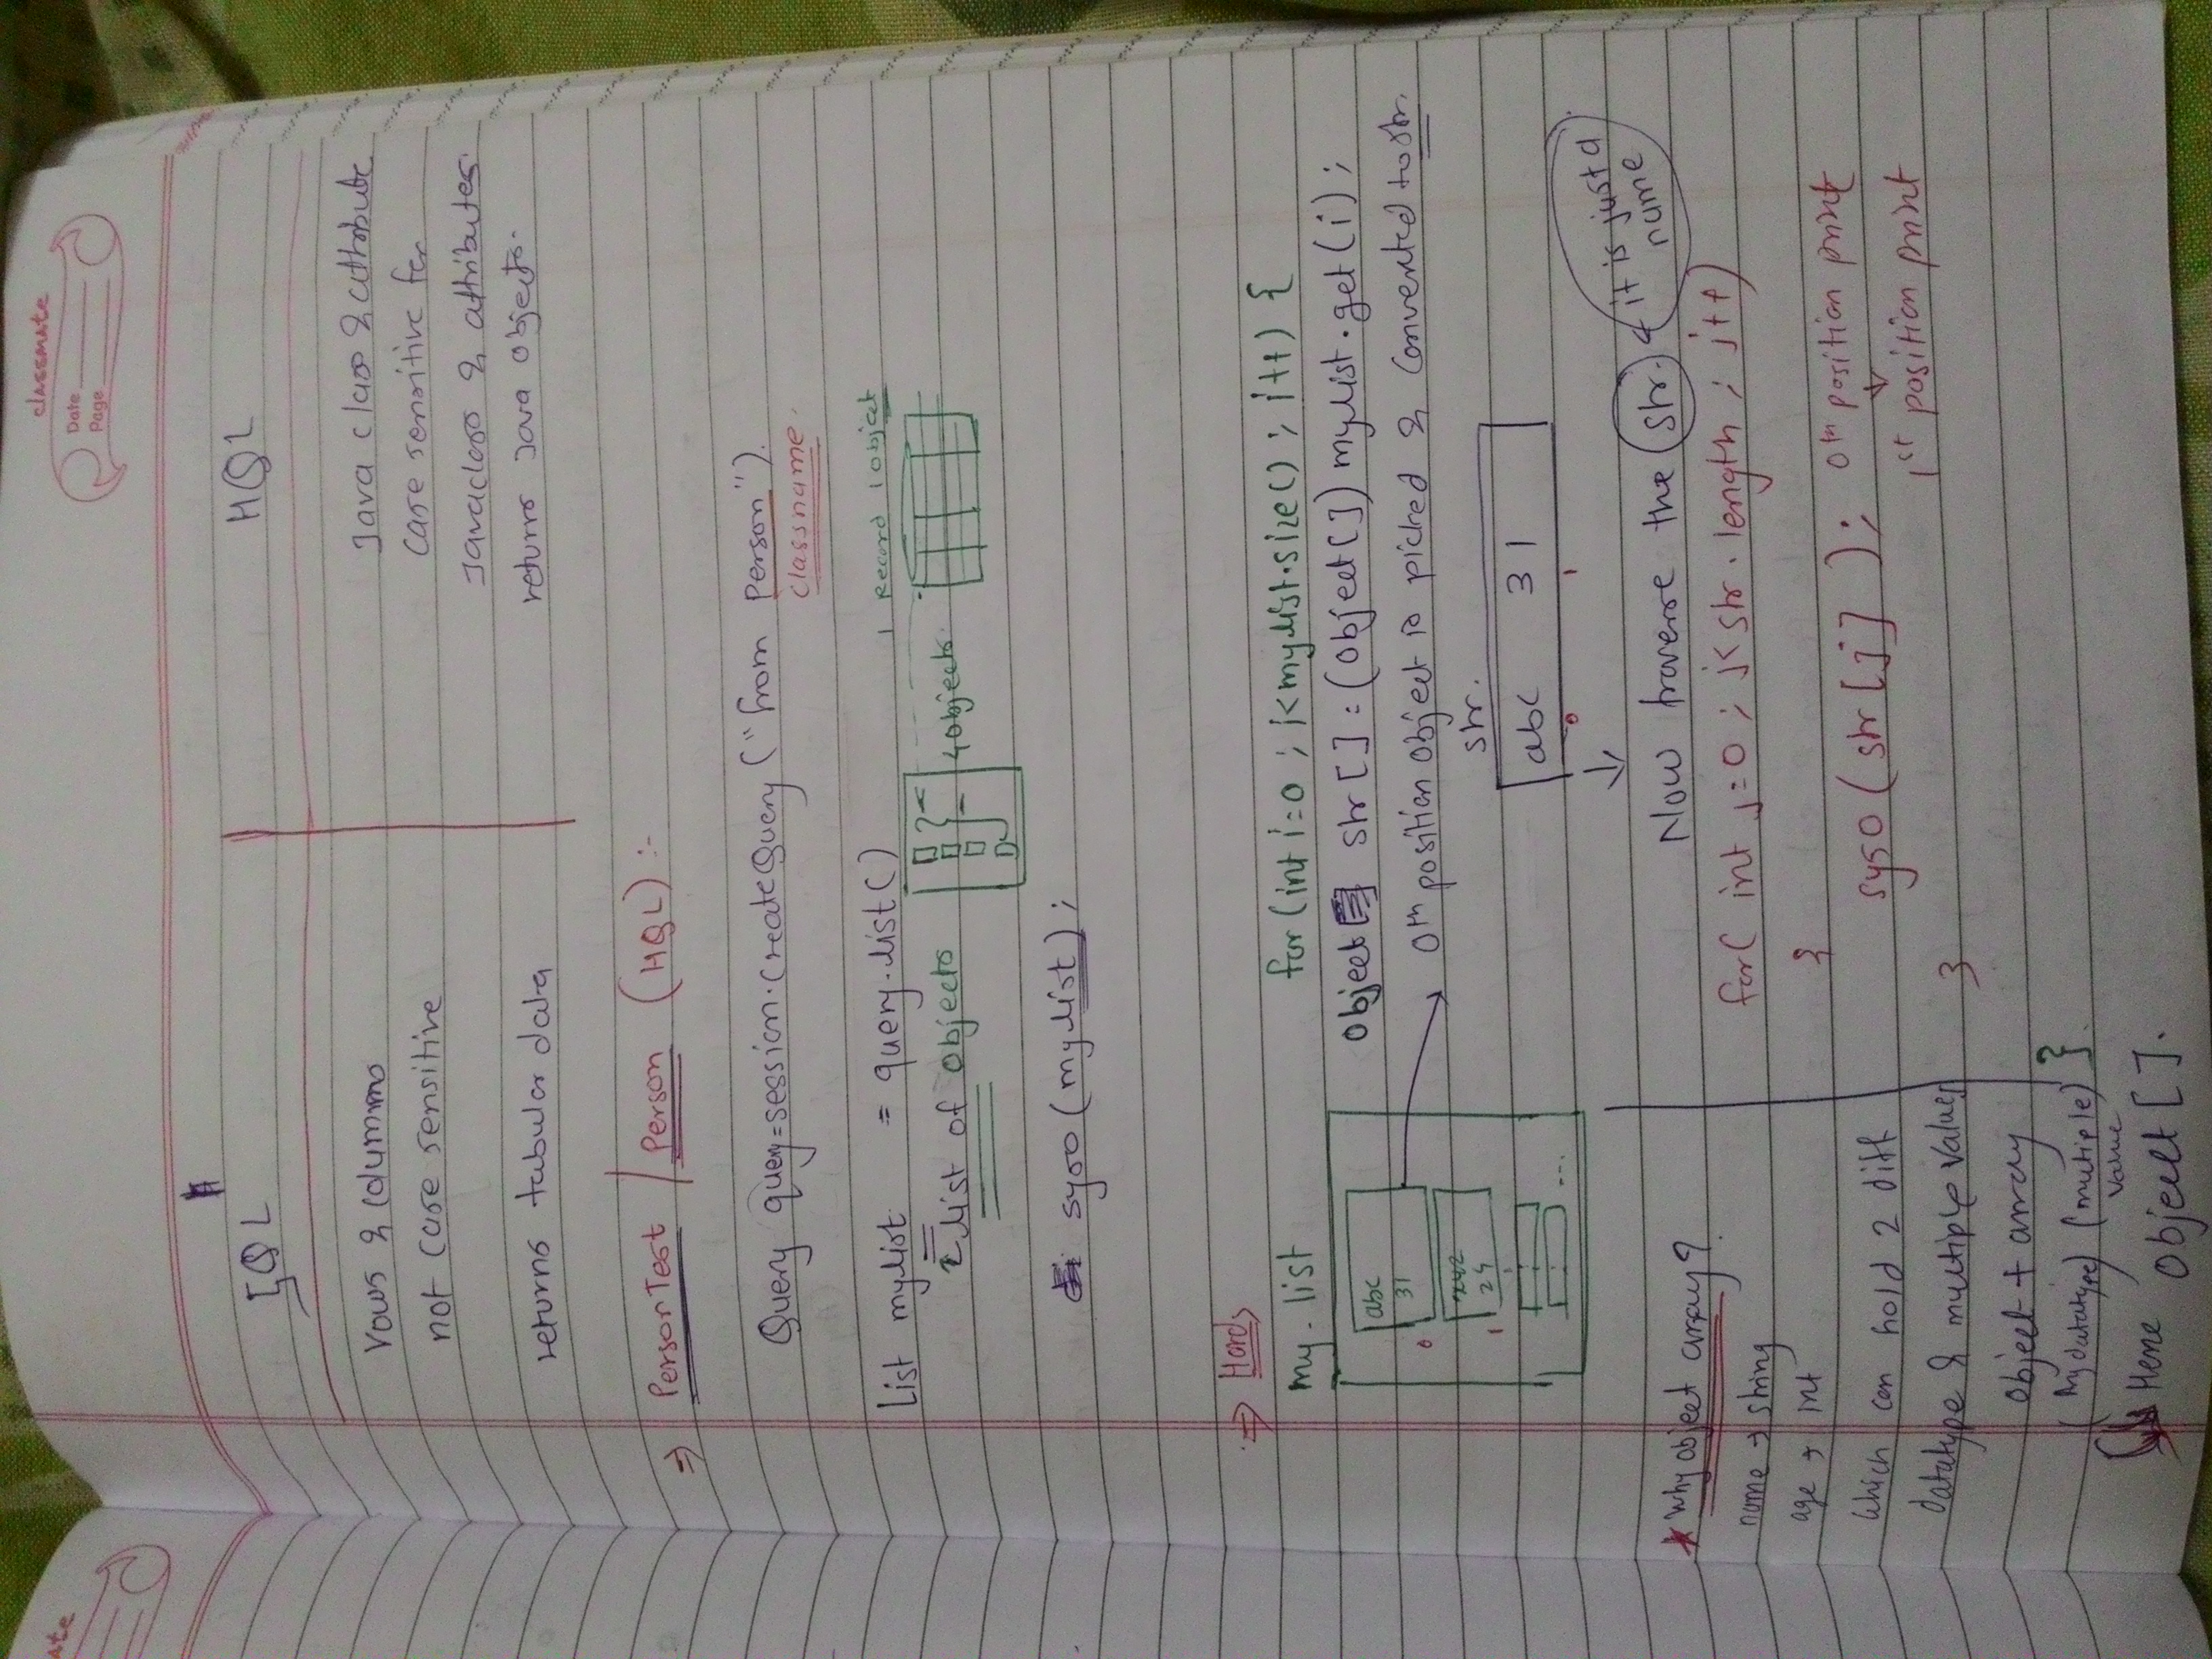 ate
classmate
Date
Page
SQL
HQL
rows & columns
Java class & attribute
not case sensitive
case sensitive for
Javaclass & attributes.
returns tabular data
returns Java objects.
⇒ PersonTest / Person (HQL) :-
Query query=session.createQuery ("from Person").
classname.
List mylist = query.list()
1 Record 1 object
list of objects
4 objects
syso (mylist);
⇒ Hard
my list
for (int i=0 ; i<mylist.size() ; i++) {
Object str [] = (Object []) mylist.get(i);
abc
31
0
0th position object is picked & converted to str.
24
1
str.
abc 31
0 1
...
Now traverse the str. ← it is just a
name
* Why object array?
for( int j=0 ; j<str.length ; j++)
name → string
age → int
{
syso (str [j] ); 0th position print
↓
1st position print
which can hold 2 diff
datatype & multiple values
}
object + array
(Any datatype) (mutiple) }
value
Hene Objeect [].